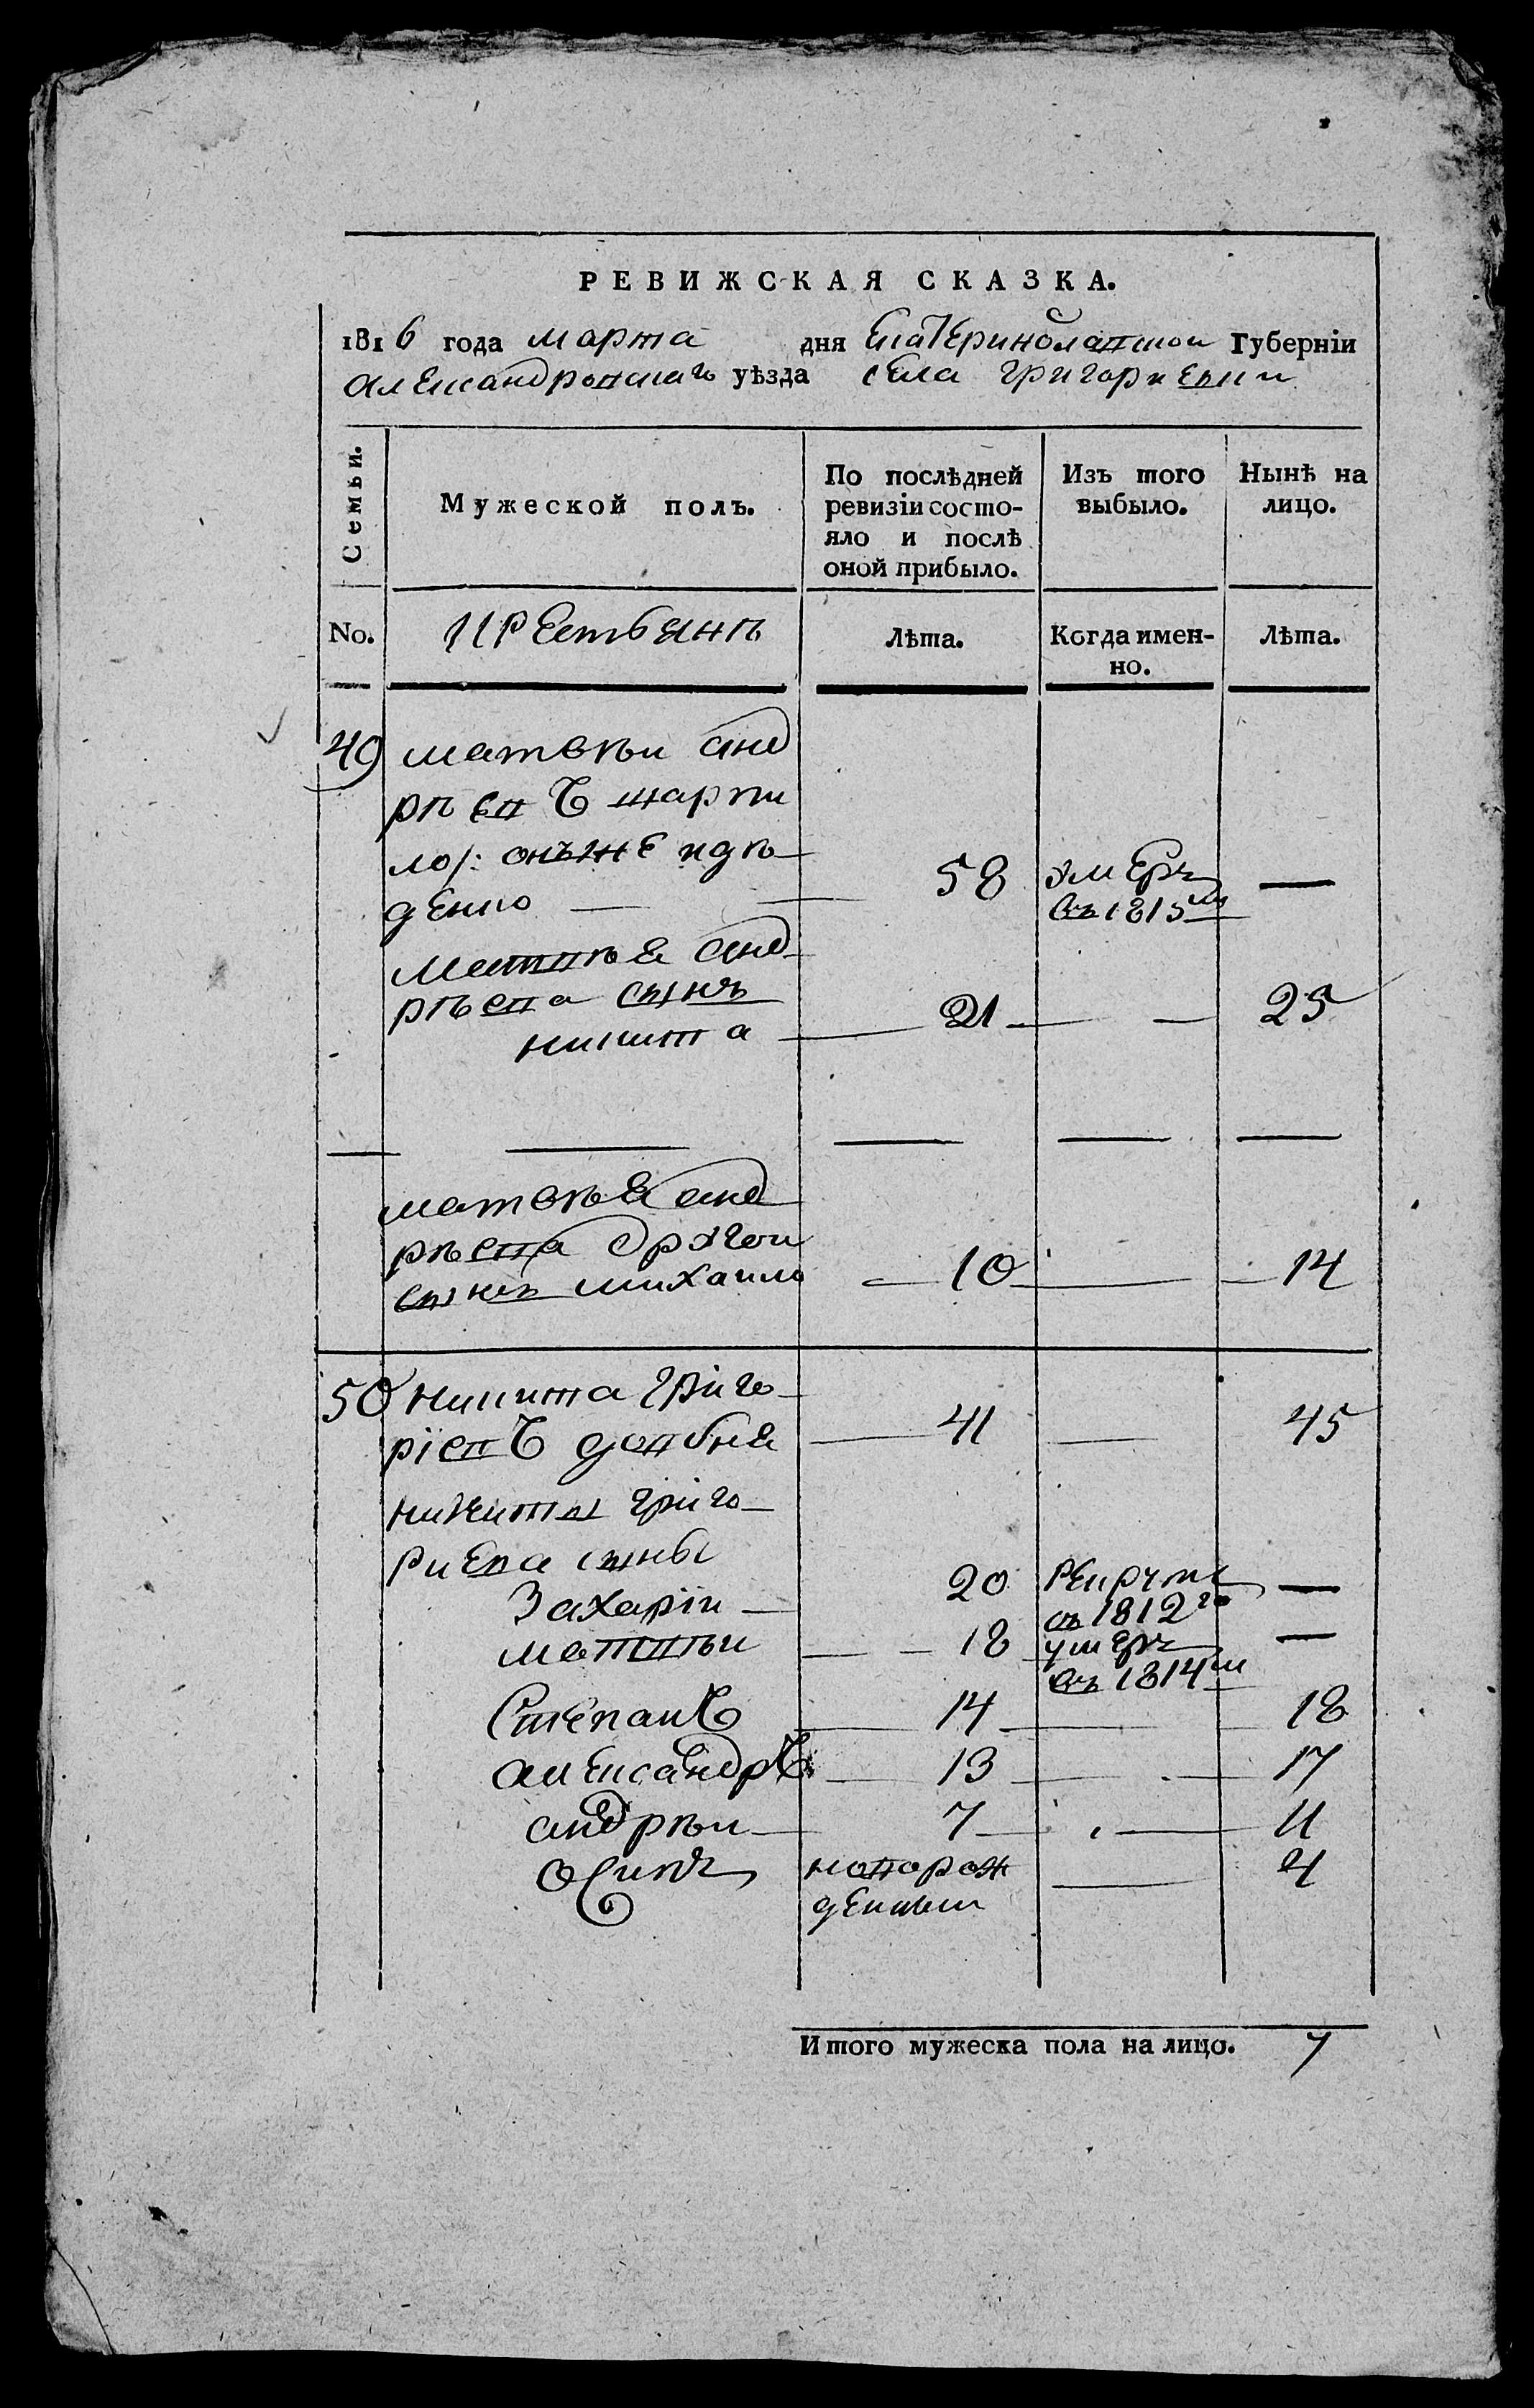 РЕВИЖСКАЯ СКАЗКА.
1816 года марта дня Екатеринославской Губерніи
Александровскаго уѣзда села Григорьевки
Семьи.
Мужеской полъ.
По послѣдней ревизіи состо-
яло и послѣ
оной прибыло.
Изъ того
выбыло.
Нынѣ на
лицо.
No.
крестьянъ
Лѣта.
Когда имен-
но.
Лѣта.
49 матвѣи анд
рѣевъ
онъже
58 умеръ —
въ 1815м
Матвѣя анд
рѣева сынъ
никита 21 — — 25
матвѣя анд
рѣева другои
сынъ михаило 10 — 14
50 никита гріго
ріевъ довбня 41 — 45
никиты гріго
риева сыны
Захаріи 20 рекрутъ —
въ 1812го
матвѣи 18 умеръ —
въ 1814м
Степанъ 14 — 18
александръ 13 — 17
андрѣи 7 — 11
Осипъ новорож — 4
денныи
Итого мужеска пола на лицо. 7